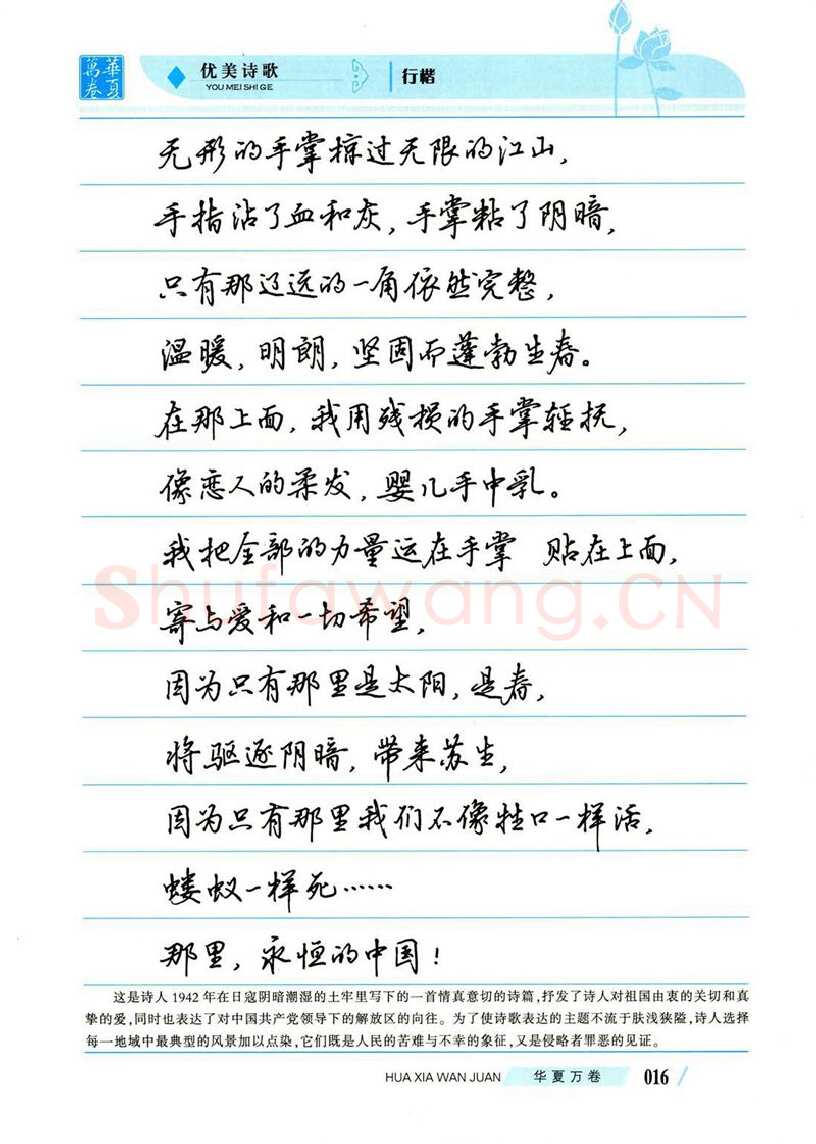 華夏萬卷
优美诗歌
YOU MEI SHI GE
行楷
无形的手掌掠过无限的江山，
手指沾了血和灰，手掌粘了阴暗，
只有那辽远的一角依然完整，
温暖，明朗，坚固而蓬勃生春。
在那上面，我用残损的手掌轻抚，
像恋人的柔发，婴儿手中乳。
我把全部的力量运在手掌 贴在上面，
寄与爱和一切希望，
因为只有那里是太阳，是春，
将驱逐阴暗，带来苏生，
因为只有那里我们不像牲口一样活，
蝼蚁一样死……
那里，永恒的中国！
Shufawang.CN
这是诗人 1942 年在日寇阴暗潮湿的土牢里写下的一首情真意切的诗篇，抒发了诗人对祖国由衷的关切和真
挚的爱，同时也表达了对中国共产党领导下的解放区的向往。为了使诗歌表达的主题不流于肤浅狭隘，诗人选择
每一地域中最典型的风景加以点染，它们既是人民的苦难与不幸的象征，又是侵略者罪恶的见证。
HUA XIA WAN JUAN
华夏万卷
016